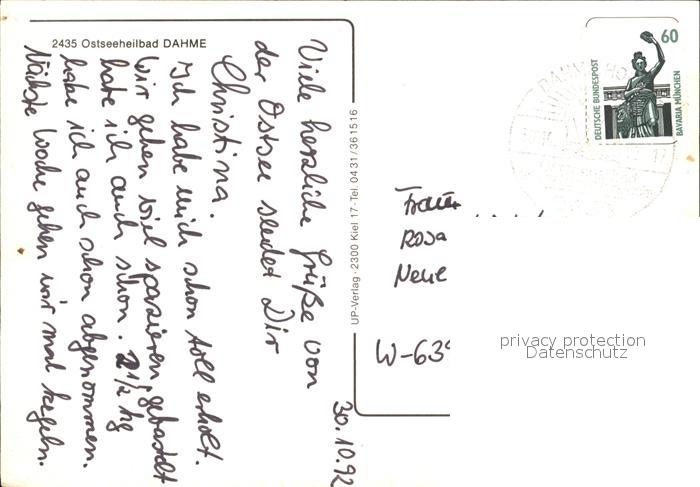 2435 Ostseeheilbad DAHME
Viele herzliche Grüße von
der Ostsee sendet Dir
Christina.
Ich habe mich schon toll erholt.
Wir gehen viel spazieren, gebastelt
habe ich auch schon. 2 1/2 kg
habe ich auch schon abgenommen.
Nächste Woche gehen wir mal kegeln.
30.10.92
UP-Verlag · 2300 Kiel 17 · Tel. 0431/361516
60
DEUTSCHE BUNDESPOST
BAVARIA MÜNCHEN
Frau
Rosa
Neue
W-639
privacy protection
Datenschutz